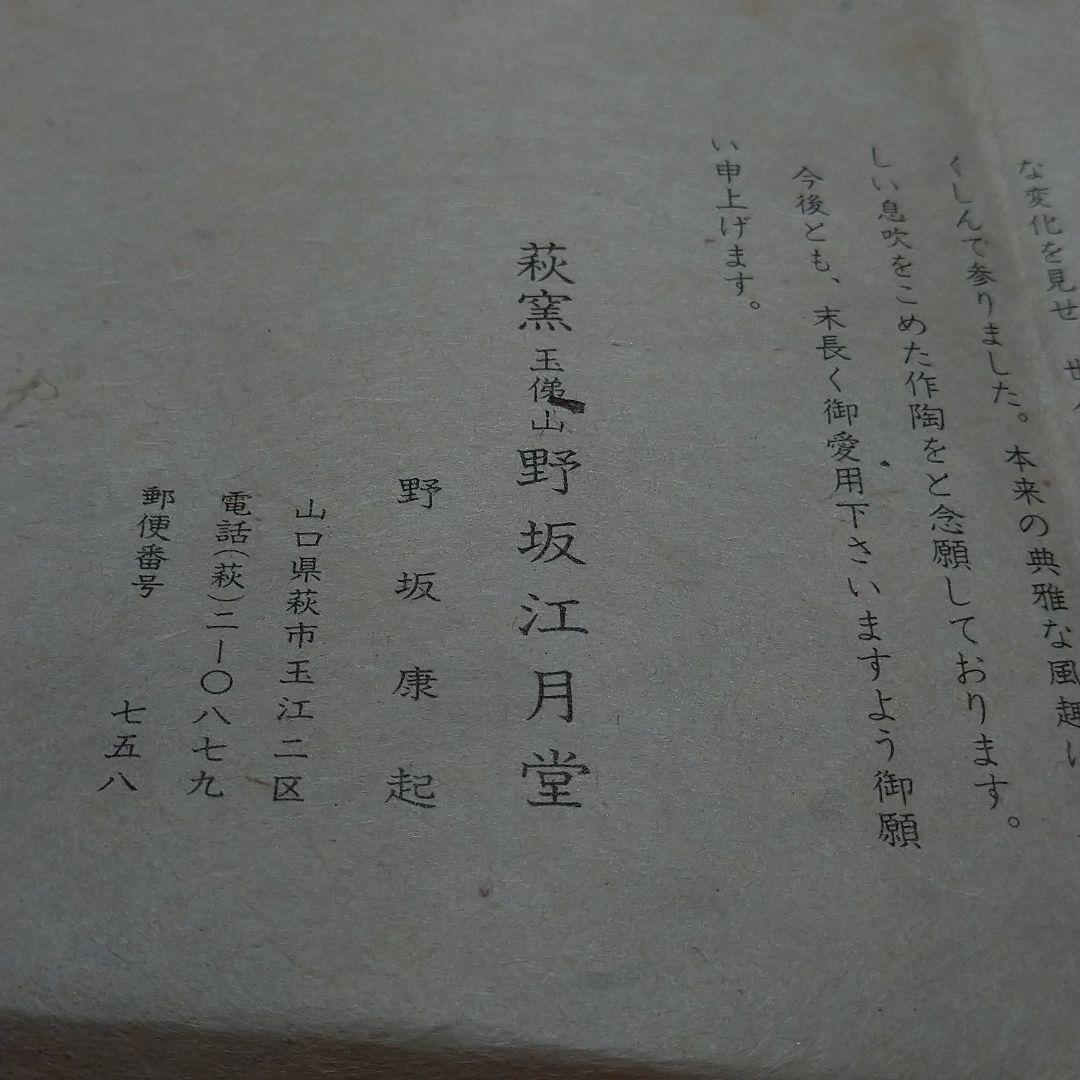 な変化を見せ
くしんで参りました。本来の典雅な風趣に
しい息吹をこめた作陶をと念願しております。
今後とも、末長く御愛用下さいますよう御願
い申上げます。
萩窯玉山野坂江月堂
野坂康起
山口県萩市玉江二区
電話(萩)二ー〇八七九
郵便番号 七五八